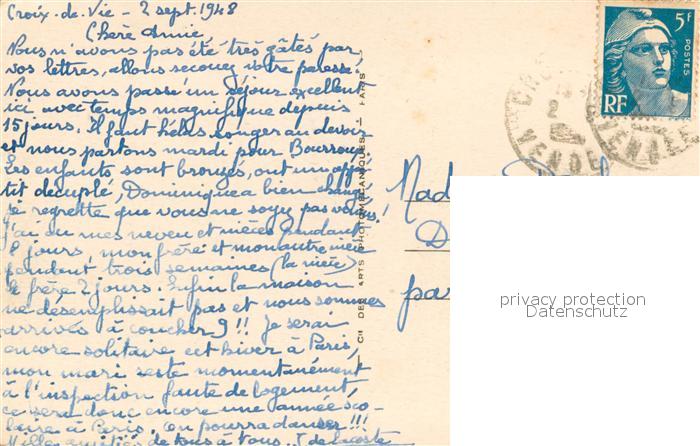 Croix-de-Vie - 2 sept. 1948
Chère Amie,
Nous n'avons pas été très gâtés par
vos lettres, allons secouez votre paresse!
Nous avons passé un séjour excellent
ici avec temps magnifique depuis
15 jours. Il faut hélas songer au devoir
et nous partons mardi pour
Les enfants sont bronzés, ont un appé-
tit décuplé, Dominique a bien changé
je regrette que vous ne soyez pas venus!
J'ai eu mes neveu et nièces pendant
8 jours, mon frère et mon autre nièce
pendant trois semaines (la nièce)
le frère 2 jours. Enfin la maison
ne désemplissait pas et nous sommes
arrivés à coucher 9!! Je serai
encore solitaire cet hiver à Paris,
mon mari reste momentanément
à l'inspection faute de logement,
ce sera donc encore une année sco-
laire à Paris. On pourra danser!!!
Mille amitiés de tous à tous.
CIE DES ARTS PHOTOMÉCANIQUES — PARIS
5F
POSTES
RF
2
VENDÉE
Mad
D
par
privacy protection
Datenschutz